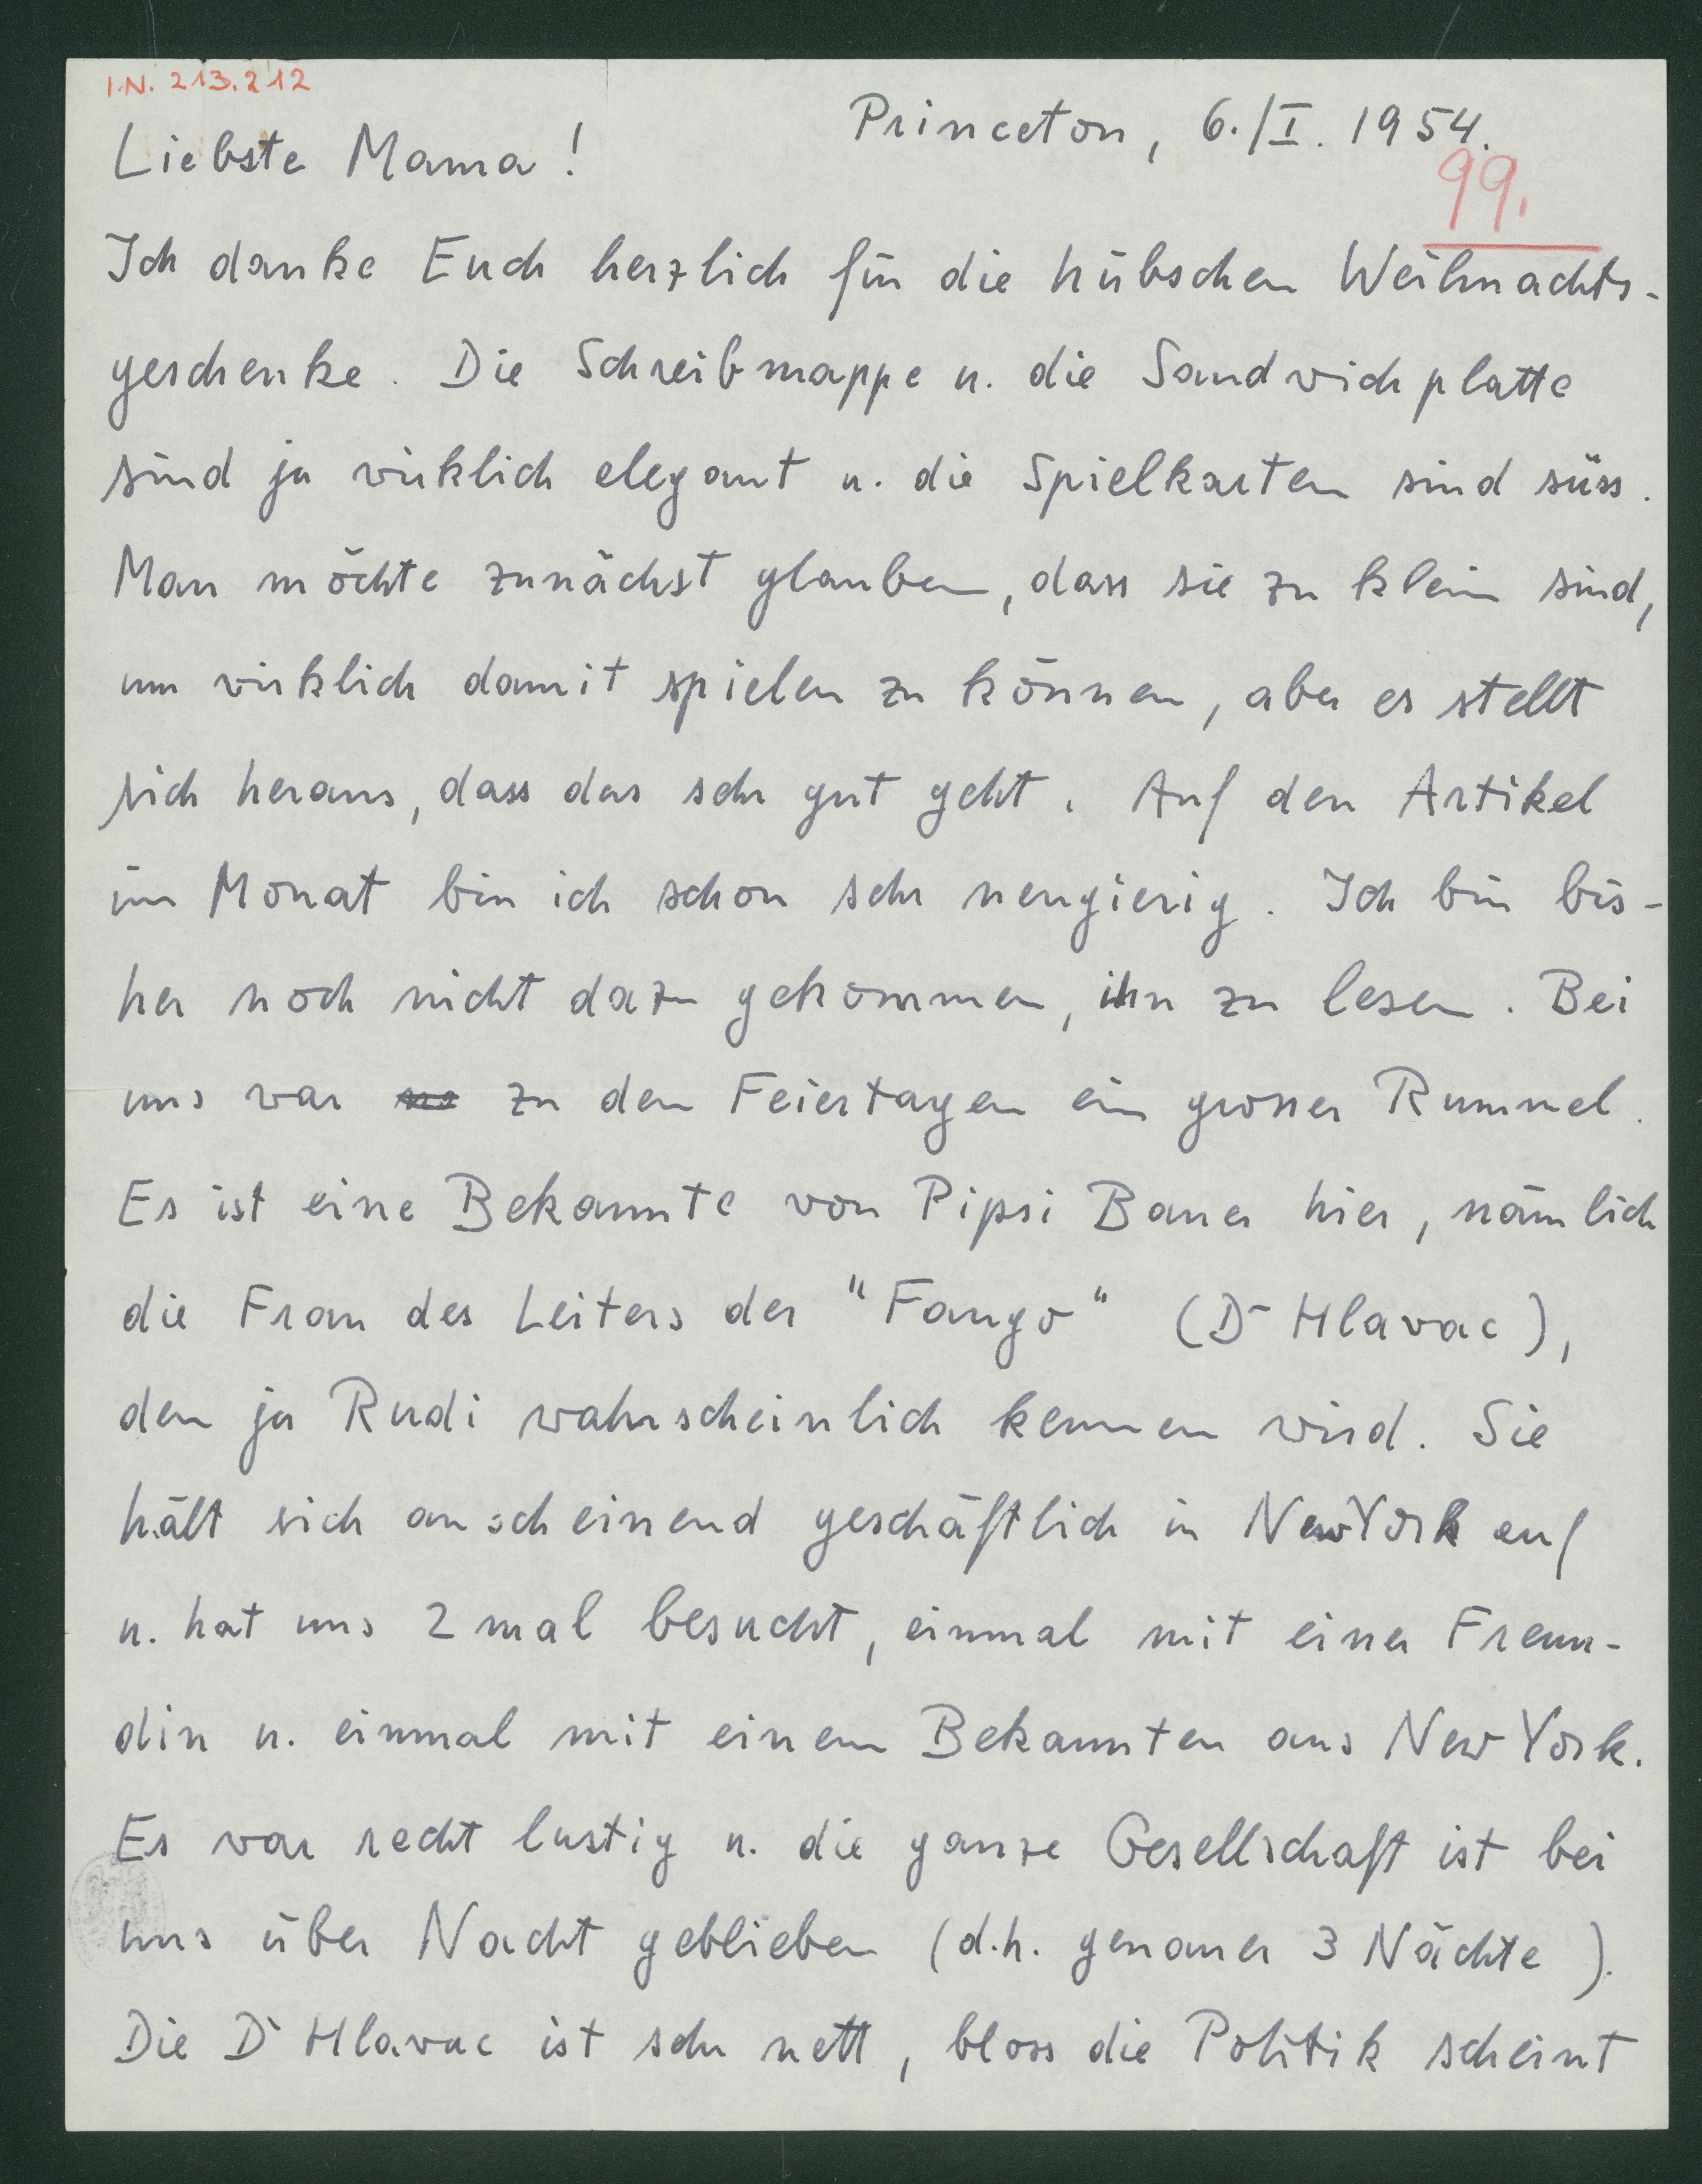 I.N. 213.212
Princeton, 6./I. 1954.
99.
Liebste Mama!
Ich danke Euch herzlich für die hübschen Weihnachts-
geschenke. Die Schreibmappe u. die Sandwichplatte
sind ja wirklich elegant u. die Spielkarten sind süss.
Man möchte zunächst glauben, dass sie zu klein sind,
um wirklich damit spielen zu können, aber es stellt
sich heraus, dass das sehr gut geht. Auf den Artikel
im Monat bin ich schon sehr neugierig. Ich bin bis-
her noch nicht dazu gekommen, ihn zu lesen. Bei
uns war zu den Feiertagen ein grosser Rummel.
Es ist eine Bekannte von Pipsi Bauer hier, nämlich
die Frau des Leiters der "Fango" (Dr Hlavac),
den ja Rudi wahrscheinlich kennen wird. Sie
hält sich anscheinend geschäftlich in New York auf
u. hat uns 2 mal besucht, einmal mit einer Freun-
din u. einmal mit einem Bekannten aus New York.
Es war recht lustig u. die ganze Gesellschaft ist bei
uns über Nacht geblieben (d.h. genauer 3 Nächte).
Die Dr Hlavac ist sehr nett, bloss die Politik scheint